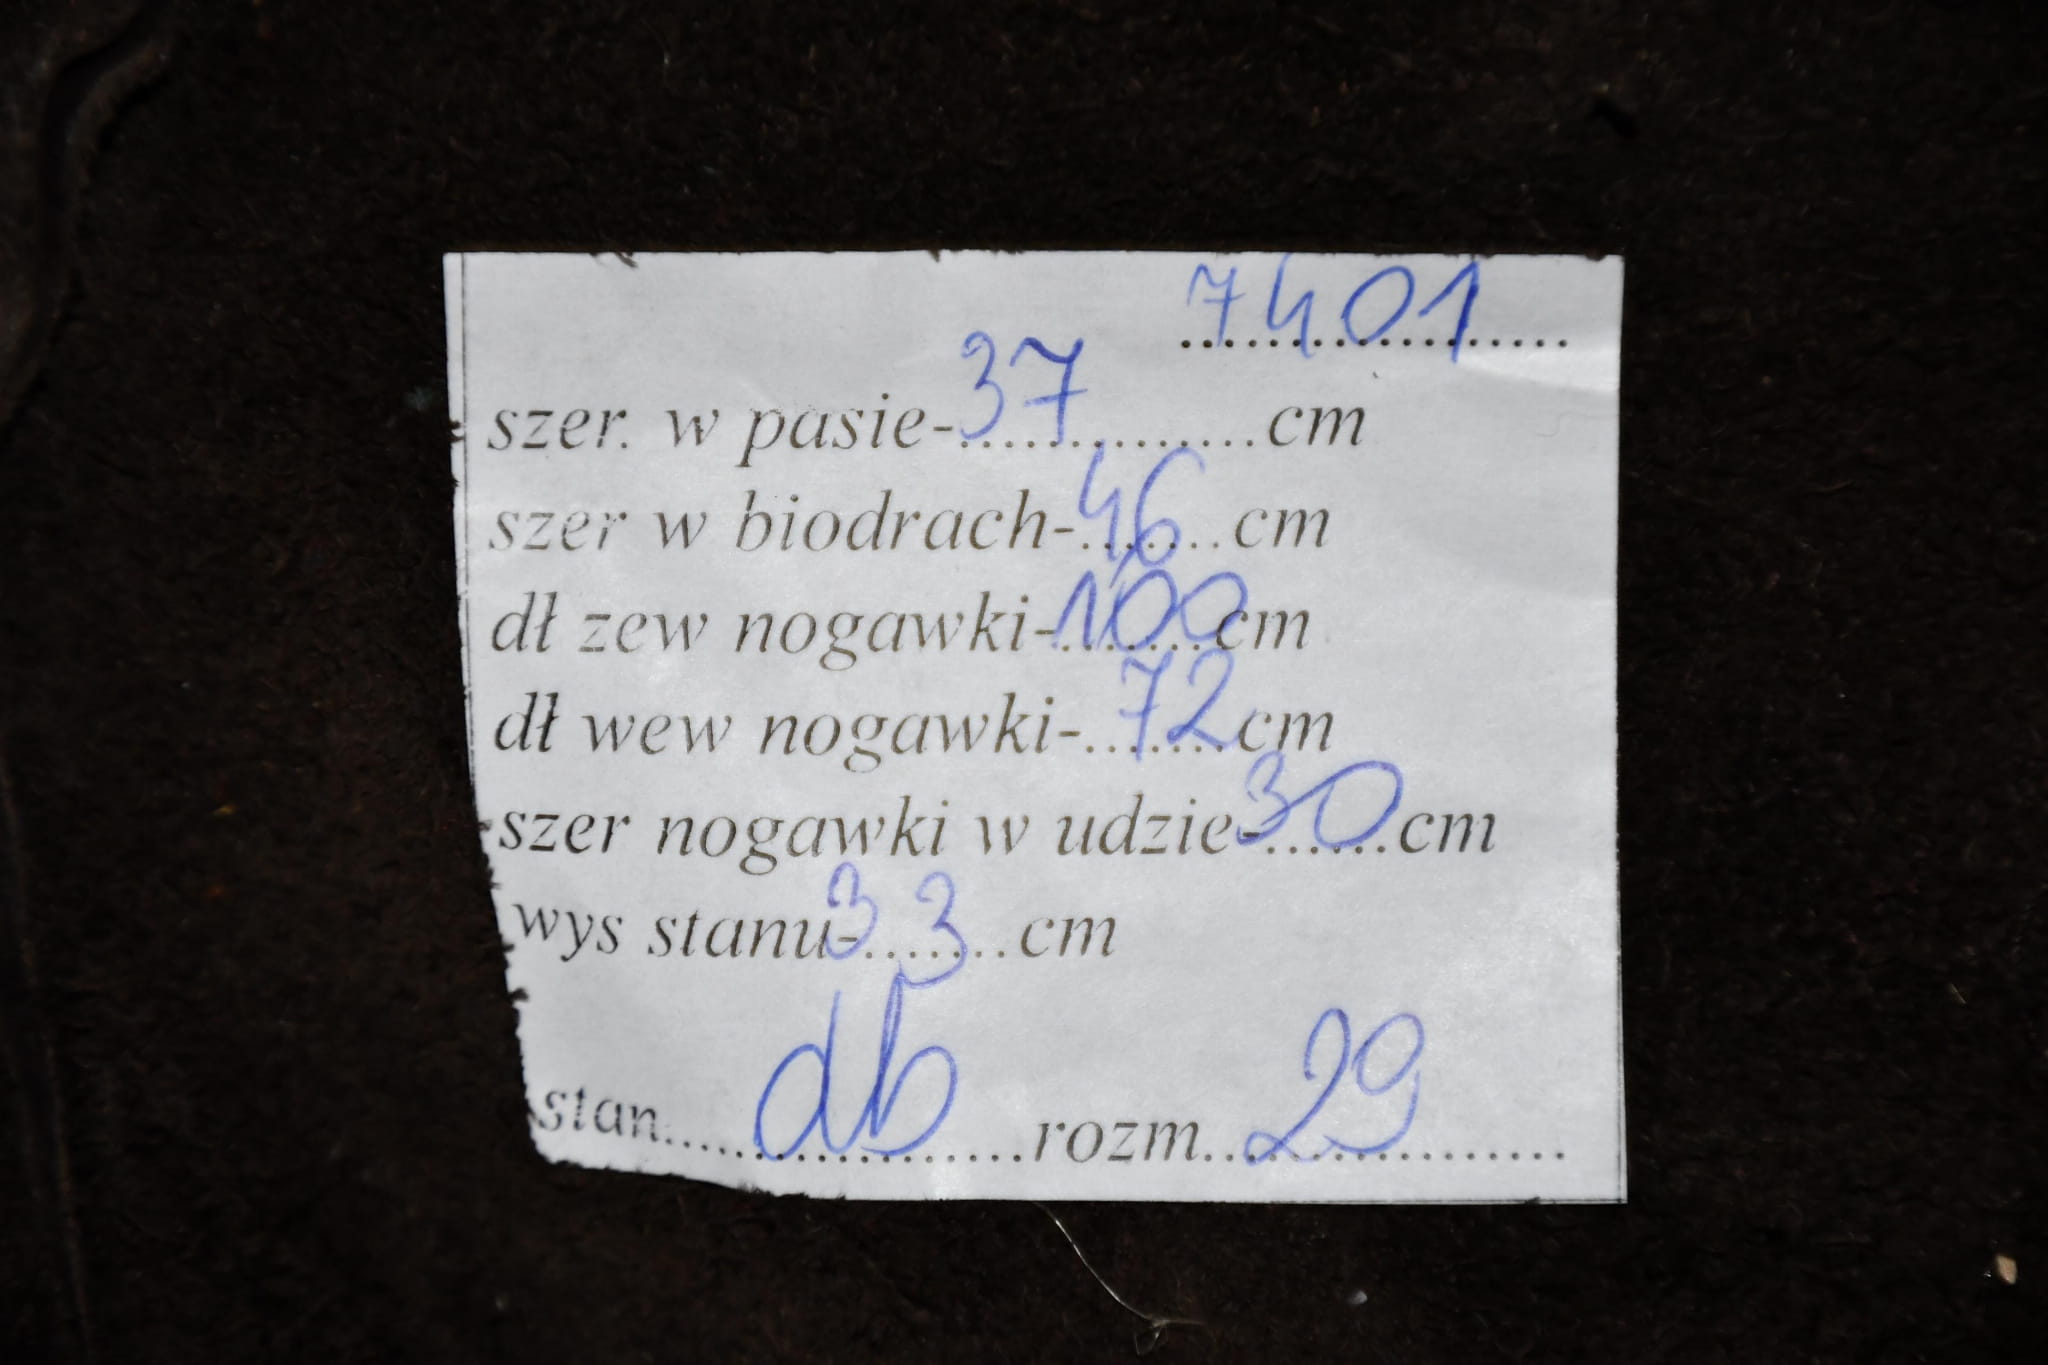 7401
szer. w pasie-37..............cm
szer w biodrach-46.......cm
dł zew nogawki-100.......cm
dł wew nogawki-72.......cm
szer nogawki w udzie-30......cm
wys stanu-33.......cm
stan....db....rozm....29....